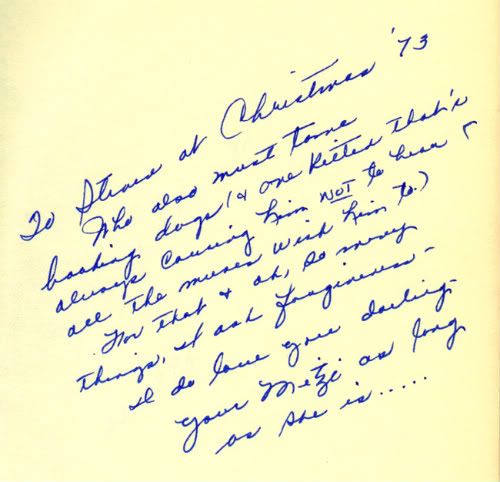 To Steves at Christmas '73
Who also must tame
barking dogs (& one Kitted that's
always causing him NOT to hear
all the muses wish him to.)
For that & oh, so many
things, I ask forgiveness -
I do love you darling -
your Mitzi as long
as she is.....